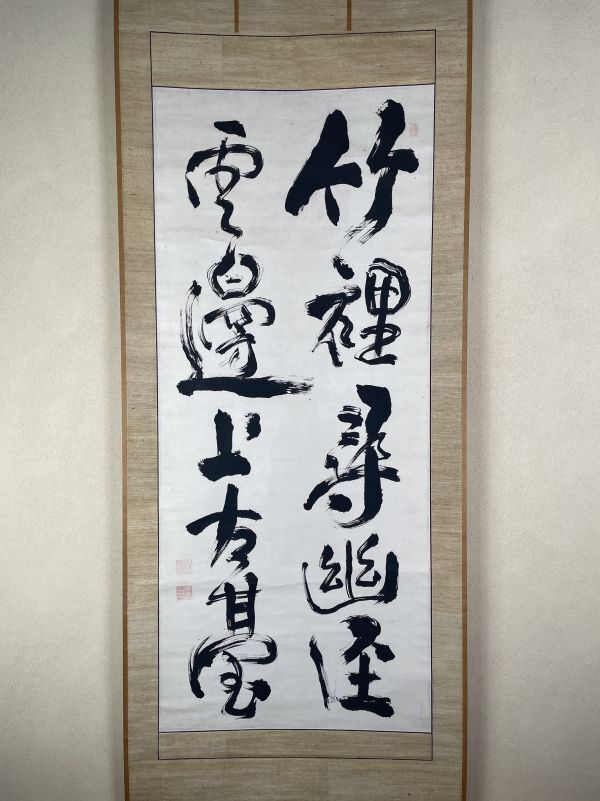 竹裡尋幽径
雲邊上古臺